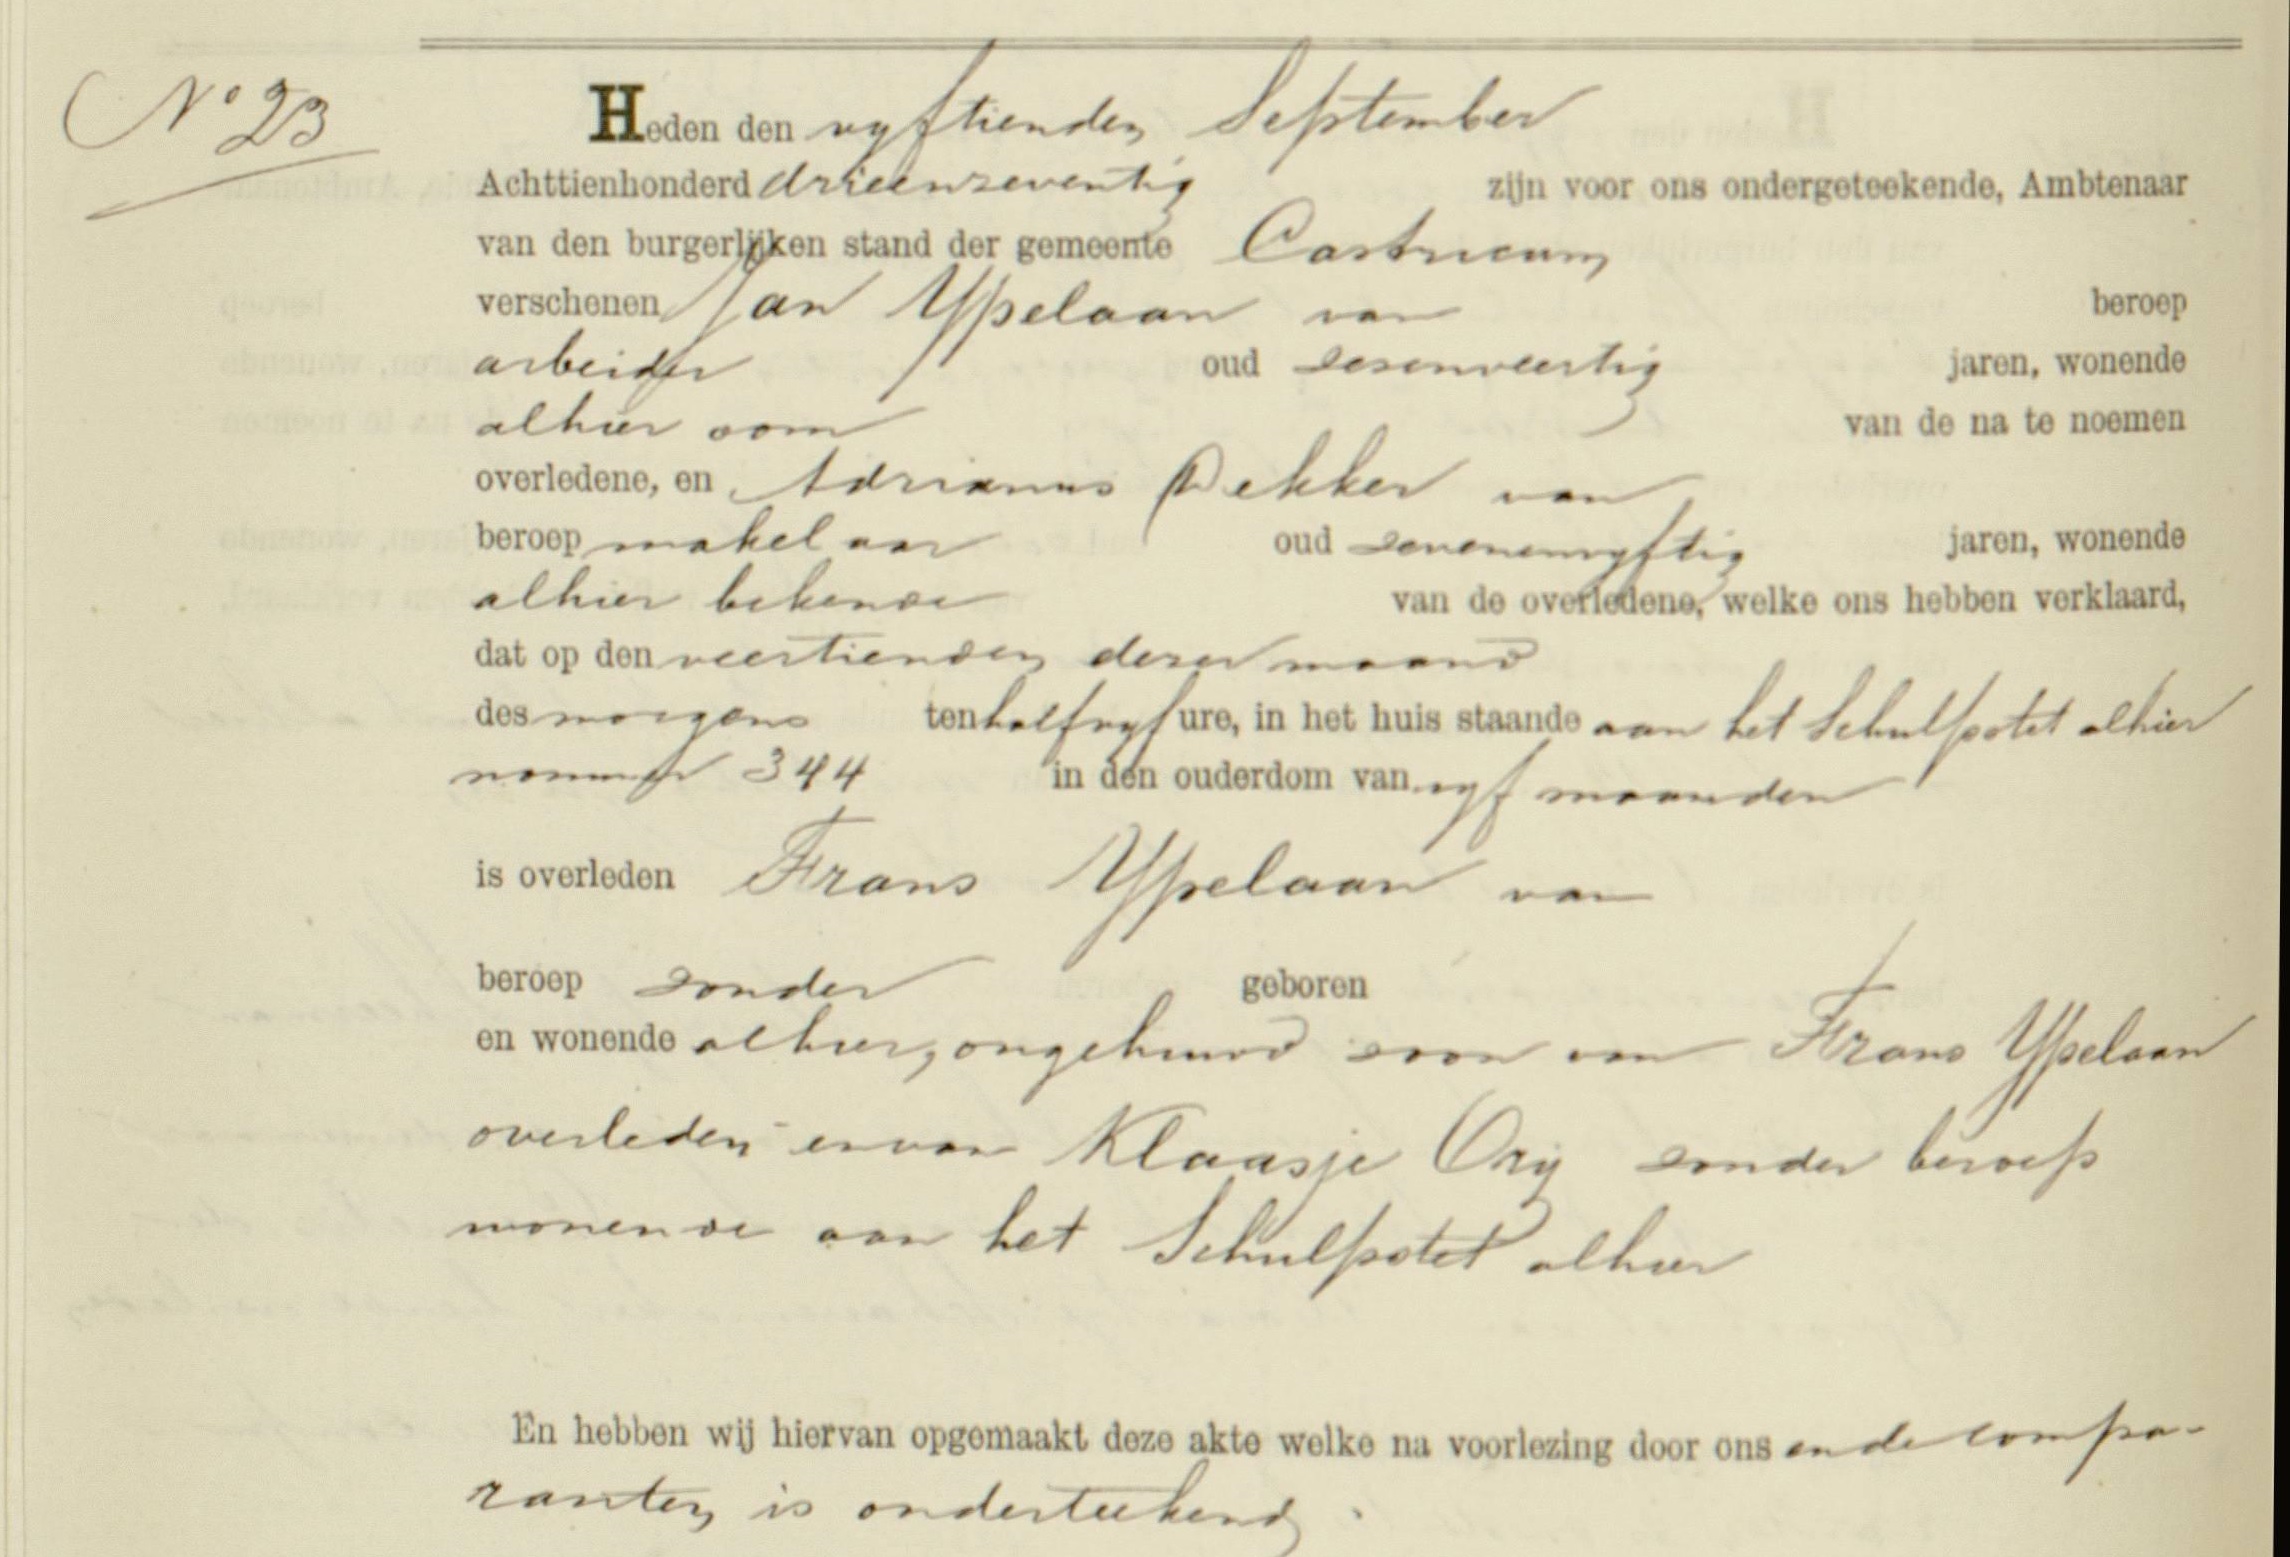 No 23
Heden den vyftienden September
Achttienhonderd drieenzeventig zijn voor ons ondergeteekende, Ambtenaar
van den burgerlijken stand der gemeente Castricum
verschenen Jan Ypelaan van beroep
arbeider oud zesenveertig jaren, wonende
alhier oom van de na te noemen
overledene, en Adrianus Dekker van
beroep makelaar oud zevenenvyftig jaren, wonende
alhier bekende van de overledene, welke ons hebben verklaard,
dat op den veertienden dezer maand
des morgens ten half vyf ure, in het huis staande aan het Schulpstet alhier
nommer 344 in den ouderdom van vyf maanden
is overleden Frans Ypelaan van
beroep zonder geboren
en wonende alhier, ongehuwd zoon van Frans Ypelaan
overleden en van Klaasje Ory zonder beroep
wonende aan het Schulpstet alhier
En hebben wij hiervan opgemaakt deze akte welke na voorlezing door ons en de compa-
ranten is onderteekend.